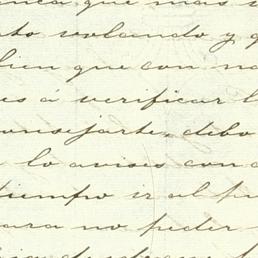 nca que mas
to volando y q
bien que con no
es á verificar l
onsejarte, debo
lo avises con a
tiempo ir al pu
ara no poder